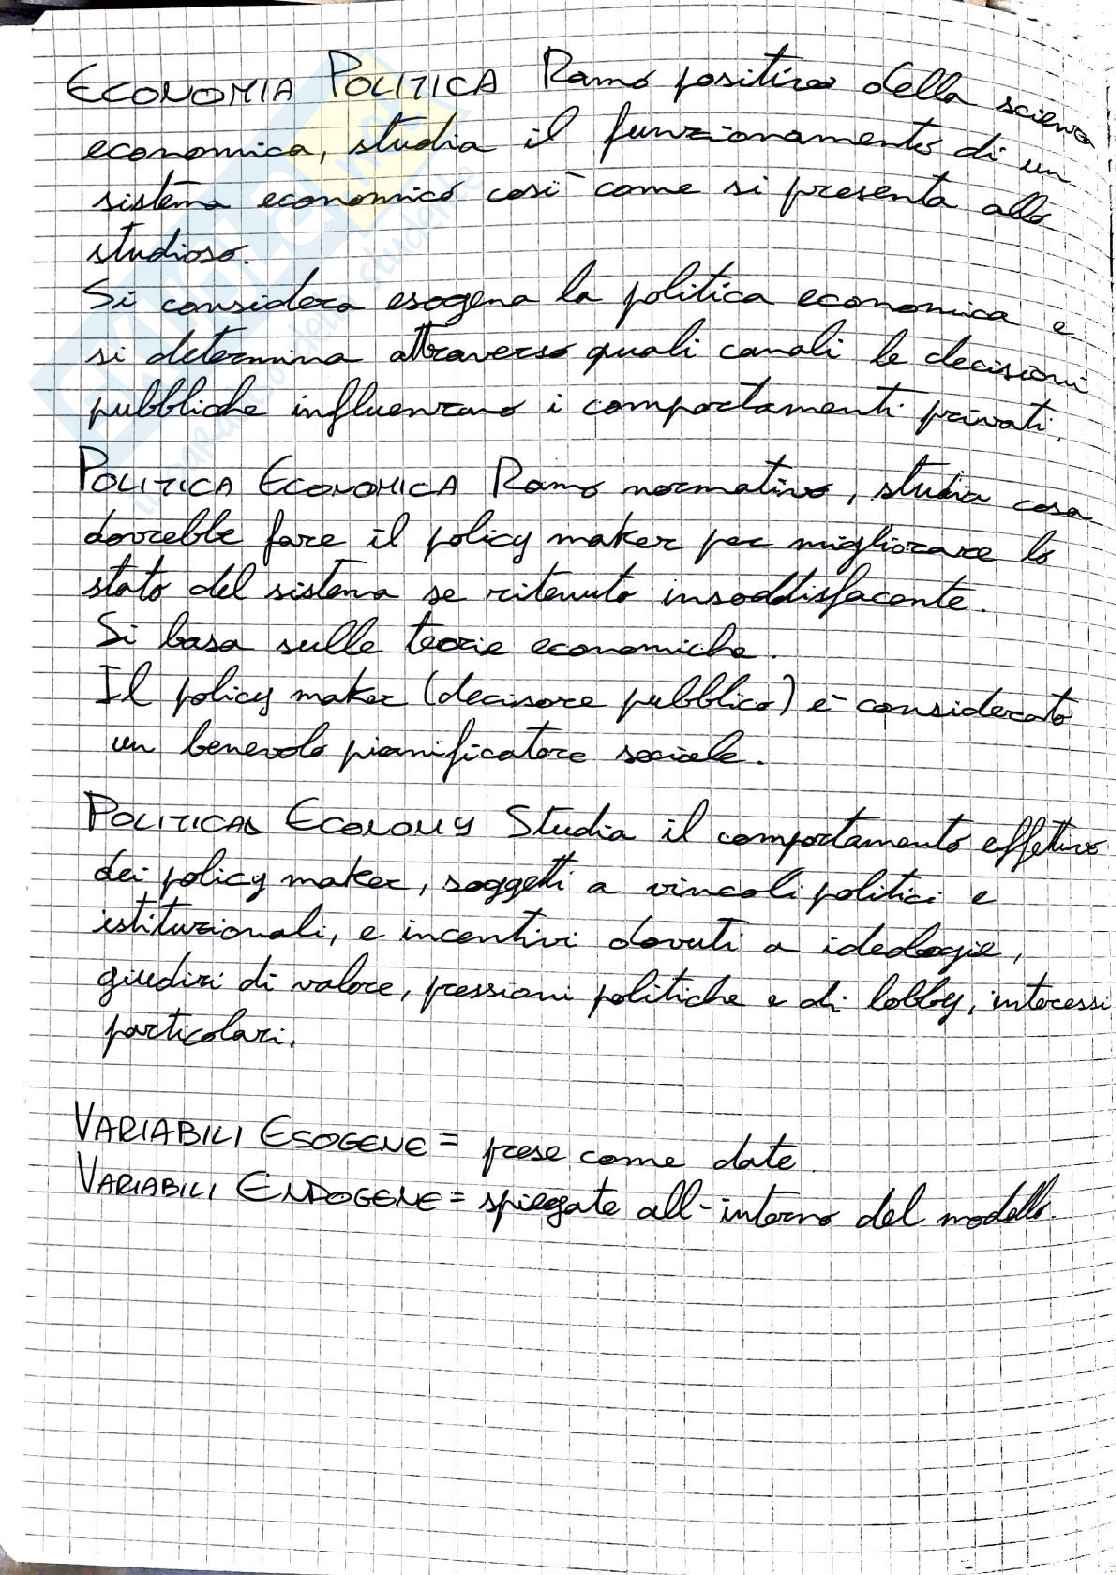 ECONOMIA POLITICA Ramo positivo della scienza
economica, studia il funzionamento di un
sistema economico così come si presenta allo
studioso.
Si considera esogena la politica economica e
si determina attraverso quali canali le decisioni
pubbliche influenzano i comportamenti privati.
POLITICA ECONOMICA Ramo normativo, studia cosa
dovrebbe fare il policy maker per migliorare lo
stato del sistema se ritenuto insoddisfacente.
Si basa sulle teorie economiche.
Il policy maker (decisore pubblico) è considerato
un benevolo pianificatore sociale.
POLITICAL ECONOMY Studia il comportamento effettivo
dei policy maker, soggetti a vincoli politici e
istituzionali, e incentivi dovuti a ideologie,
giudizi di valore, pressioni politiche e di lobby, interessi
particolari.
VARIABILI ESOGENE = prese come date.
VARIABILI ENDOGENE = spiegate all'interno del modello.